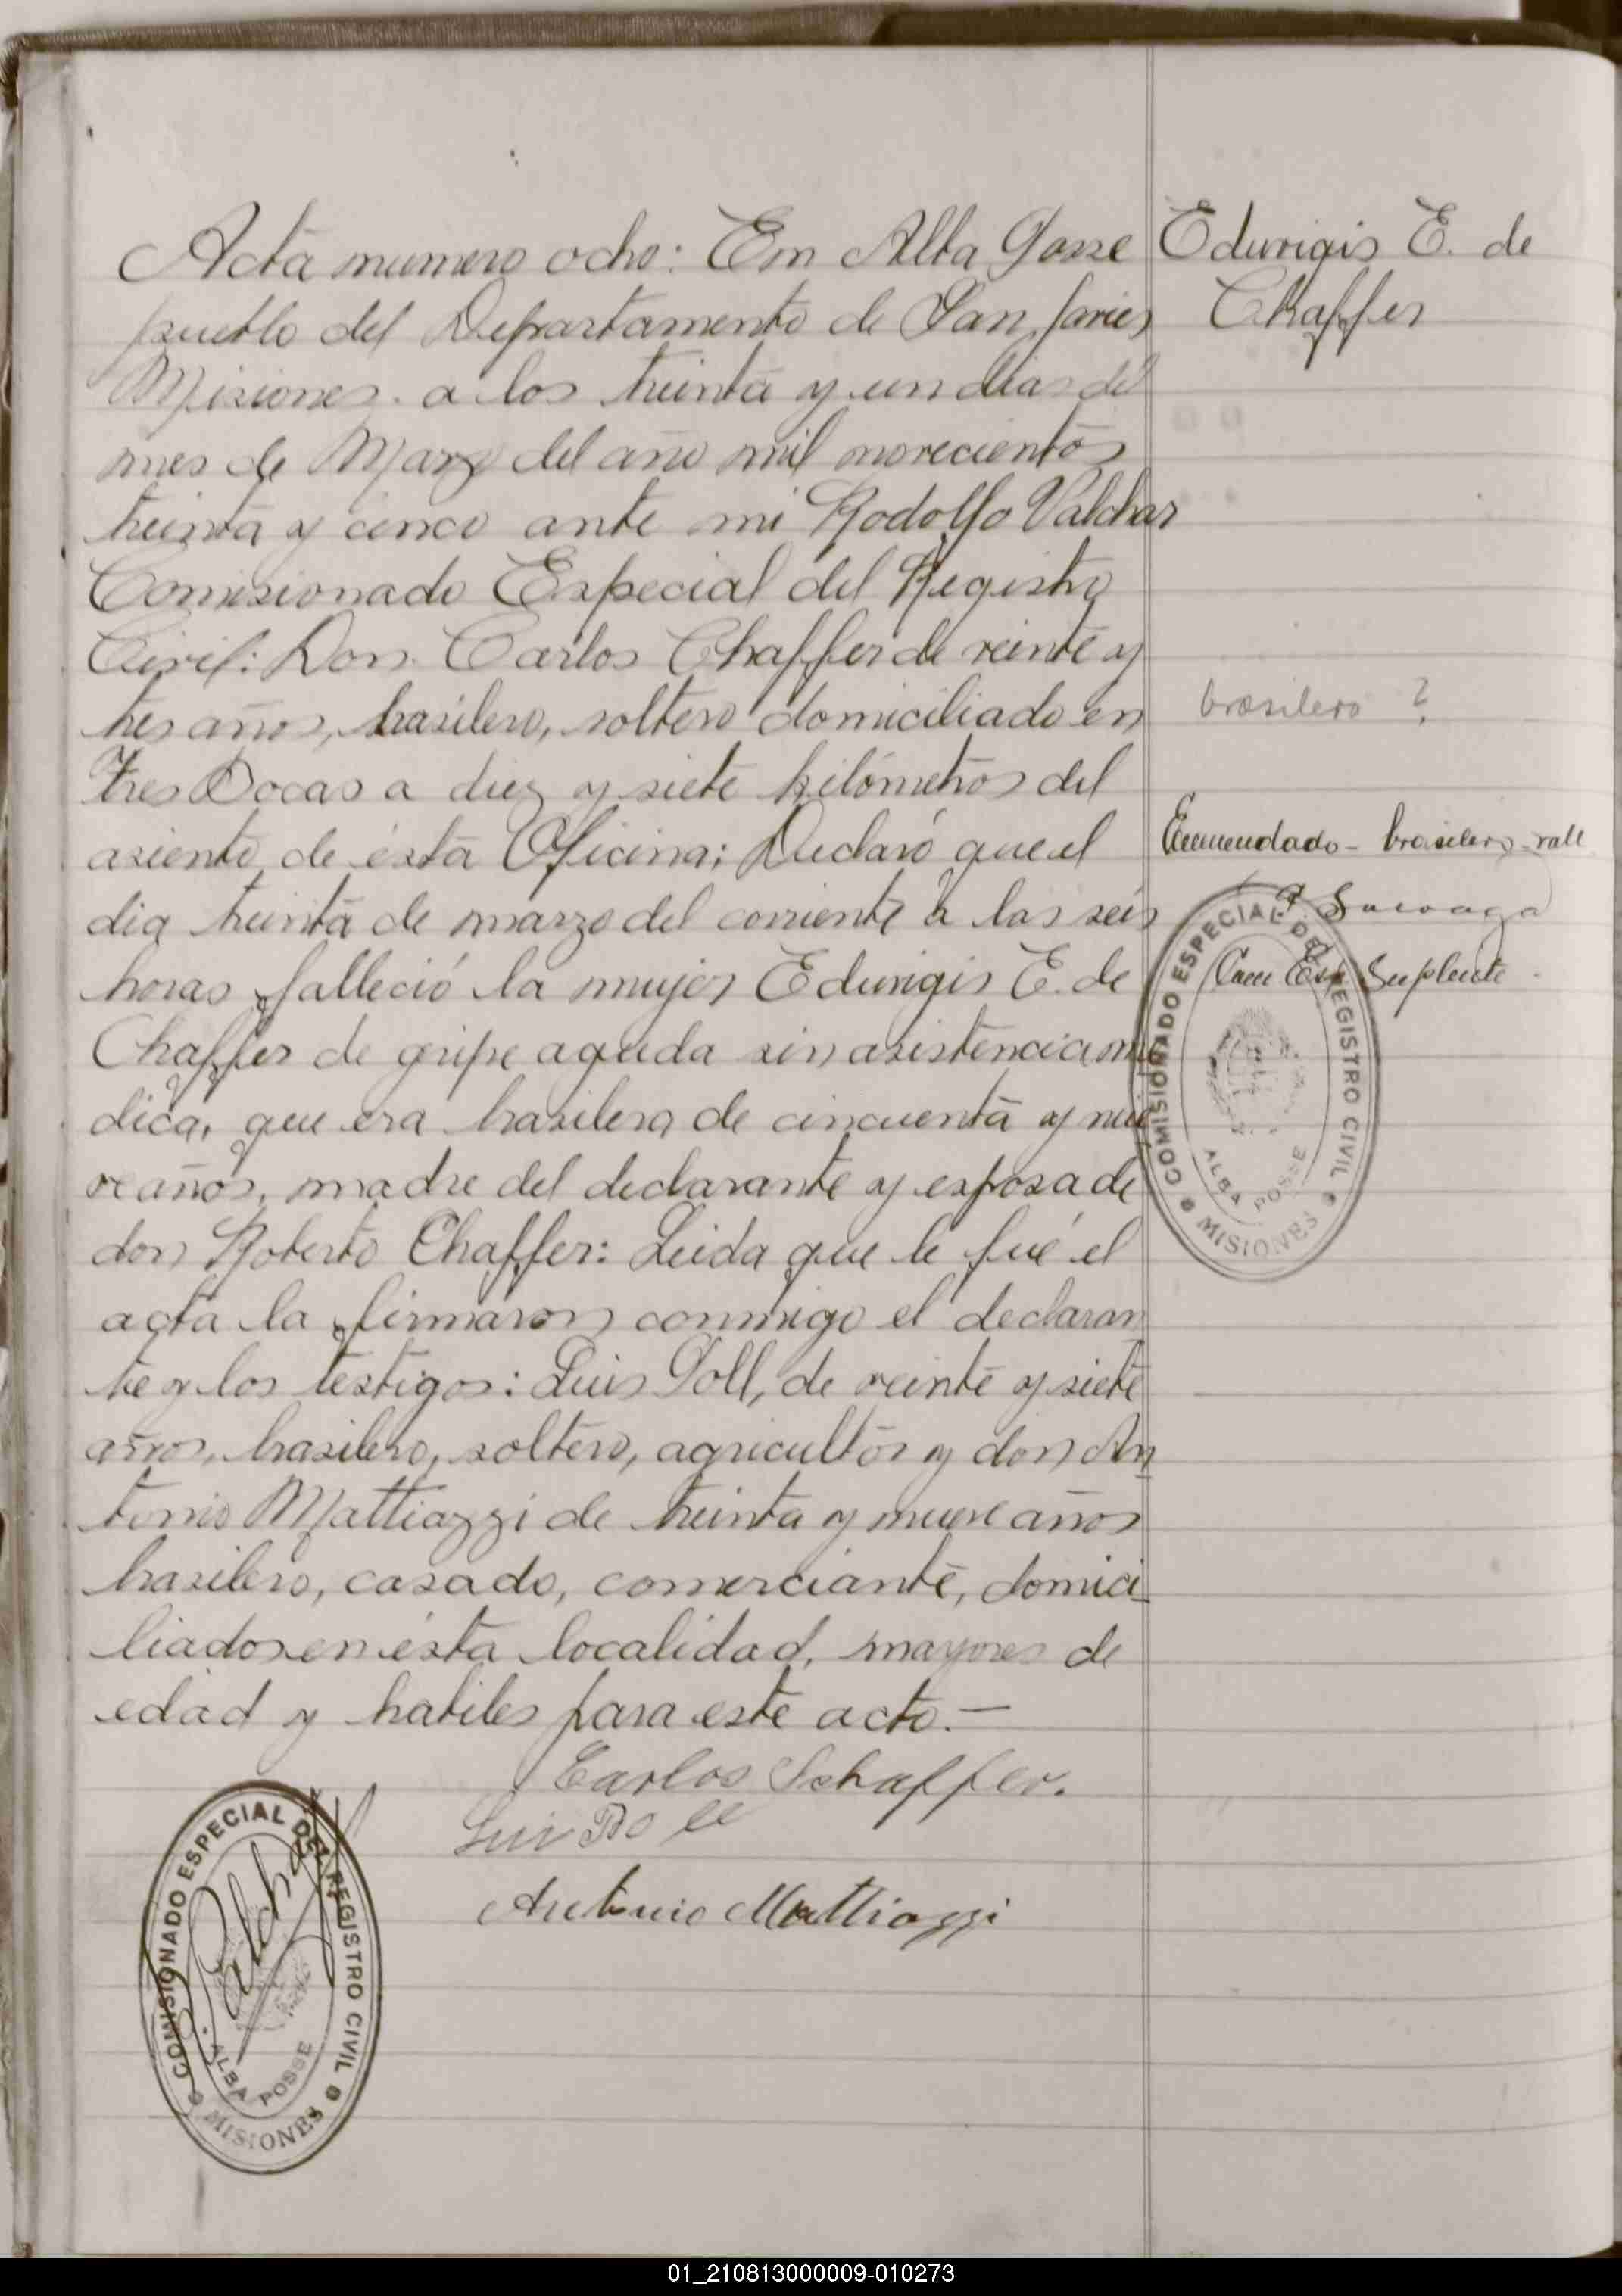 Acta numero ocho: En Alba Posse
pueblo del Departamento de San Javier
Misiones. a los treinta y un dias del
mes de Marzo del año mil novecientos
treinta y cinco ante mi Rodolfo Valchar
Comisionado Especial del Registro
Civil: Don Carlos Chaffer de veinte y
tres años, brasilero, soltero domiciliado en
Tres Bocas a diez y siete kilómetros del
asiento de ésta Oficina; Declaró que el
dia treinta de marzo del corriente a las seis
horas falleció la mujer Eduvigis E. de
Chaffer de gripe aguda sin asistencia me
dica, que era brasilera de cincuenta y nue
ve años, madre del declarante y esposa de
don Roberto Chaffer: Leida que le fué el
acta la firmaron conmigo el declaran
te y los testigos: Luis Boll, de veinte y siete
años, brasilero, soltero, agricultor y don An
tonio Mattiazzi de treinta y nueve años
brasilero, casado, comerciante, domici
liados en ésta localidad, mayores de
edad y habiles para este acto.—
Carlos Schaffer.
Luis Boll
Antonio Mattiazzi
COMISIONADO ESPECIAL DEL REGISTRO CIVIL
ALBA POSSE
MISIONES
Eduvigis E. de
Chaffer
brasilero ?
Enmendado - brasilero - vale
Suplente
COMISIONADO ESPECIAL DEL REGISTRO CIVIL
ALBA POSSE
MISIONES
01_210813000009-010273